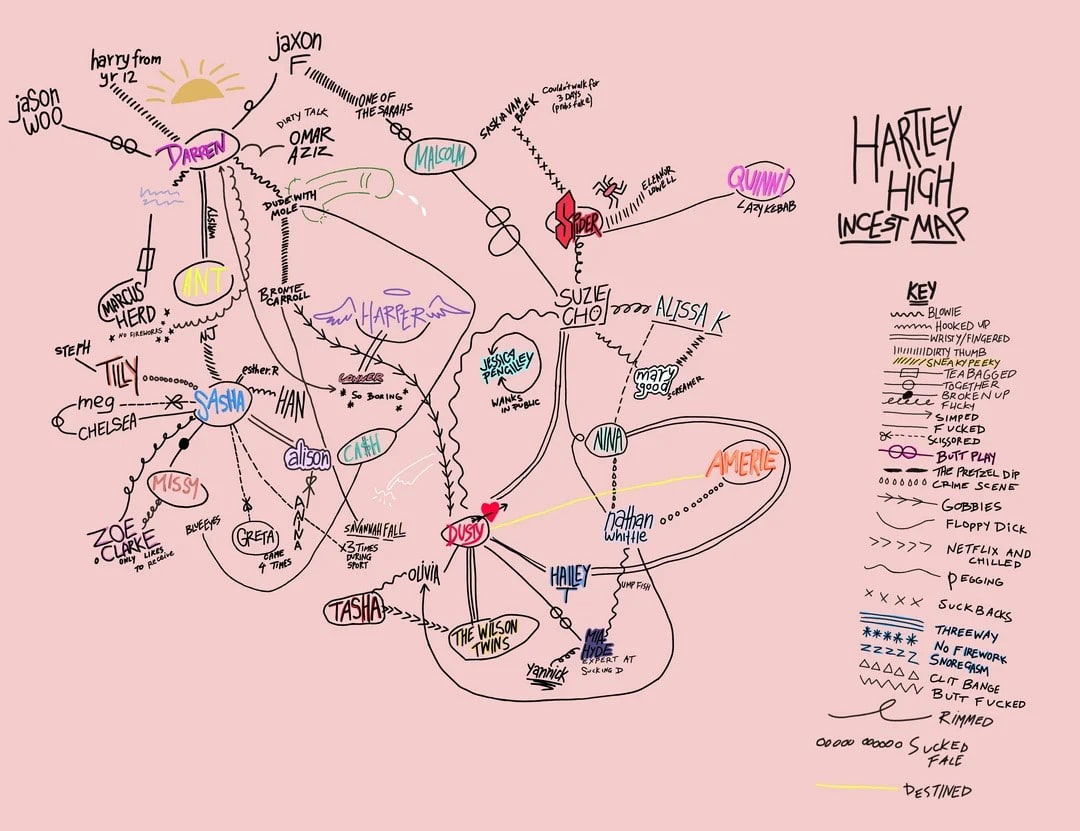 harry from
yr 12
jaxon
F
jason
WOO
ONE OF
THE SARAHS
DIRTY TALK
OMAR
AZIZ
DARREN
MALCOLM
SASKIA VAN
BEEK
Couldn't walk for
3 DAYS
(probs fake)
ELEANOR
LOWELL
SPIDER
QUINNI
LAZY KEBAB
HARTLEY
HIGH
INCEST MAP
DUDE WITH
MOLE
ANT
MARCUS
HERD
NO FIREWORKS
BRONTE
CARROLL
HARPER
SO BORING
SUZIE
CHO
ALISSA K
JESSICA
PENGILLEY
WANKS
IN PUBLIC
mary
good
SCREAMER
NJ
STEPH
TILLY
esther.R
HAN
meg
CHELSEA
SASHA
alison
CA$H
NINA
AMERIE
MISSY
ZOE
CLARKE
ONLY LIKES
TO RECEIVE
BLUE EYES
GRETA
CAME
4 TIMES
ANNA
SAVANNAH FALL
3 TIMES
DURING
SPORT
DUSTY
nathan
whittle
OLIVIA
HAILEY
T
TASHA
THE WILSON
TWINS
MIA
HYDE
EXPERT AT
SUCKING D
Yannick
KEY
BLOWIE
HOOKED UP
WRISTY/FINGERED
DIRTY THUMB
SNEAKY PEEKY
TEABAGGED
TOGETHER
BROKEN UP
SIMPED
FUCKED
SCISSORED
BUTT PLAY
THE PRETZEL DIP
CRIME SCENE
GOBBIES
FLOPPY DICK
NETFLIX AND
CHILLED
PEGGING
SUCKBACKS
THREEWAY
NO FIREWORK
SNOREGASM
CLIT BANGE
BUTT FUCKED
RIMMED
SUCKED
DESTINED